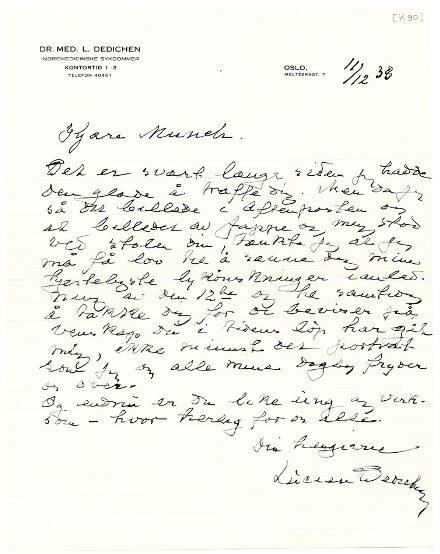 [K90]
DR. MED. L. DEDICHEN
INDREMEDICINSKE SYKDOMMER
KONTORTID 1-3
TELEFON 40461
OSLO,
MELTZERSGT. 7
11/12 38
Kjære Munch.
Det er svært lenge siden jeg hadde
den glede å træffe dig. Men da jeg
så dit billede i Aftenposten og
at billedet av Jappe og mig stod
ved stolen din, tænkte jeg at jeg
må få lov til å sende dig mine
hjerteligste lykønskninger i anled-
ning av den 12te og samtidig
å takke dig for de beviser på
venskap du i tidens løp har gitt
mig, ikke minst det portræt
som jeg og alle mine daglig fryder
os over.
Og endnu er du like ung og virk-
som – hvor herlig for os alle.
Din hengivne
Lucien Dedichen